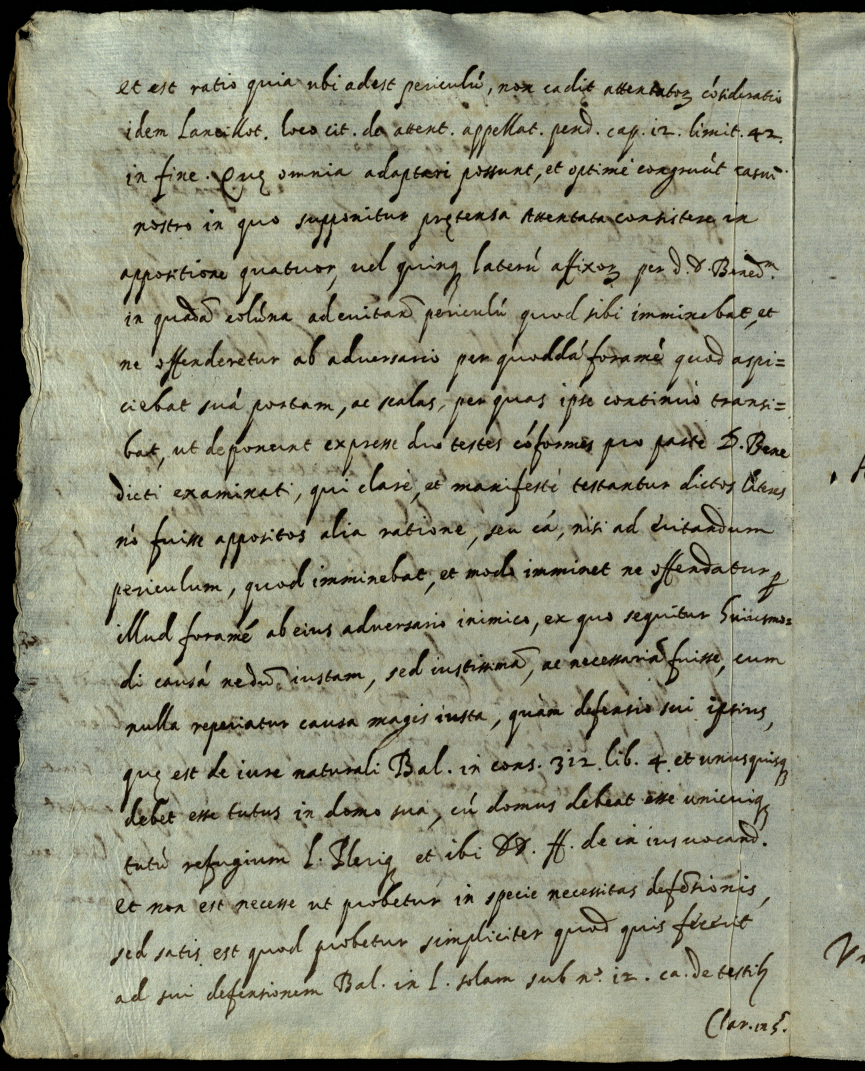 et est ratio quia ubi adest periculũ, non cadit attentatoꝝ cõsideratio
idem Lancillot. loco cit. de attent. appellat. pend. cap. 12. limit. 42.
in fine. Quę omnia adaptari possunt, et optimè congruũt casui
nostro in quo supponitur prętensa Attentata consistere in
appositione quatuor, vel quinqꝫ laterũ affixoꝝ per d. D. Bened.ᵐ
in quadã colũna ad evitand̃ periculũ quod sibi imminebat, et
ne offenderetur ab adversario per quoddã foramẽ quod aspi=
ciebat suã portam, ac scalas, per quas ipse continuò transi=
bat, ut deponunt expresse duo testes cõformes pro parte D. Bene
dicti examinati, qui clarè, et manifestè testantur dictos lateres
nõ fuisse appositos alia ratione, seu cã, nisi ad evitandum
periculum, quod imminebat, et modo imminet ne offendatur ꝑ
illud foramẽ ab eius adversario inimico, ex quo sequitur huiusmo=
di causã nedũ iustam, sed iustissimã, ac necessariã fuisse, cum
nulla reperiatur causa magis iusta, quàm defensio sui ipsius,
quę est de iure naturali Bal. in cons. 312. lib. 4. et unusquisqꝫ
debet esse tutus in domo sua, cũ domus debeat esse unicuiqꝫ
tutũ refugium l. Pleriqꝫ et ibi DD. ff. de in ius vocand.
et non est necesse ut probetur in specie necessitas defẽsionis,
sed satis est quod probetur simpliciter quod quis fecerit
ad sui defensionem Bal. in l. solam sub nº. 12. ca. de testib
Clar. in §.